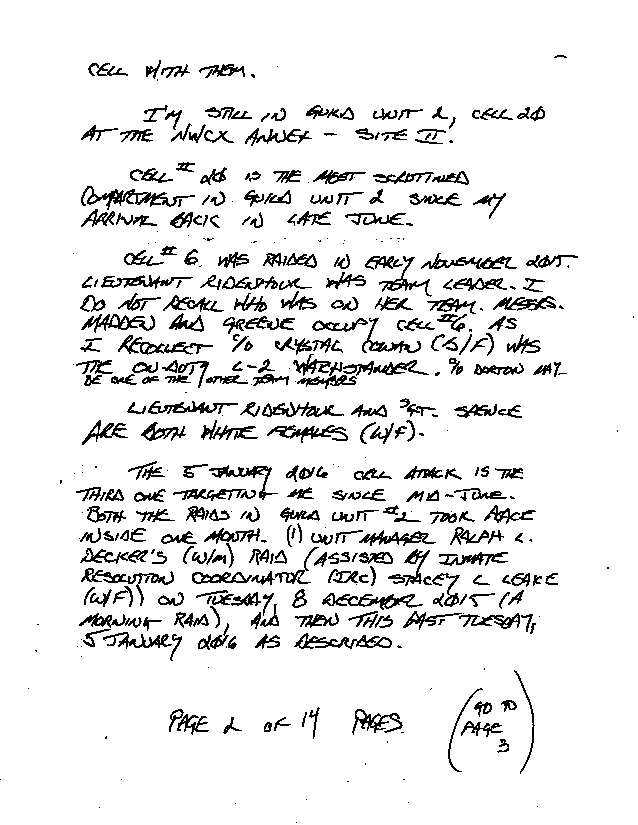 CELL WITH THEM.
I'M STILL IN GUILD UNIT 2, CELL 20
AT THE NWCX ANNEX - SITE II.
CELL # 20 IS THE MOST SCRUTINIED
COMPARTMENT IN GUILD UNIT 2 SINCE MY
ARRIVAL BACK IN LATE JUNE.
CELL # 6 WAS RAIDED IN EARLY NOVEMBER 2015.
LIEUTENANT RIDENHOUR WAS TEAM LEADER. I
DO NOT RECALL WHO WAS ON HER TEAM. MESSRS.
MADDEN AND GREENE OCCUPY CELL #6. AS
I RECOLLECT C/O CRYSTAL COWAN (S/F) WAS
THE ON-DUTY L-2 WATCHSTANDER. C/O DORTON MAY
BE ONE OF THE OTHER TEAM MEMBERS
LIEUTENANT RIDENHOUR AND SGT. SPENCE
ARE BOTH WHITE FEMALES (W/F).
THE 5 JANUARY 2016 CELL ATTACK IS THE
THIRD ONE TARGETING ME SINCE MID-JUNE.
BOTH THE RAIDS IN GUILD UNIT #2 TOOK PLACE
INSIDE ONE MONTH. (1) UNIT MANAGER RALPH L.
DECKER'S (W/M) RAID (ASSISTED BY INMATE
RESOLUTION COORDINATOR (IRC) STACEY L LEAKE
(W/F)) ON TUESDAY, 8 DECEMBER 2015 (A
MORNING RAID), AND THEN THIS PAST TUESDAY,
5 JANUARY 2016 AS DESCRIBED.
PAGE 2 OF 14 PAGES
(GO TO
PAGE
3)